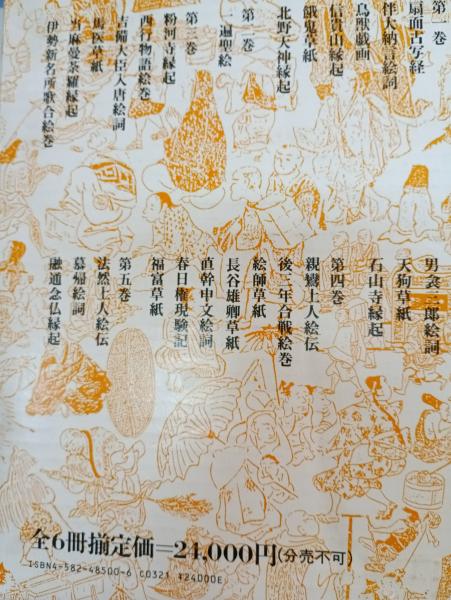 第一巻
扇面古写経
伴大納言絵詞
鳥獣戯画
信貴山縁起
餓鬼草紙
北野天神縁起
第二巻
一遍聖絵
第三巻
粉河寺縁起
西行物語絵巻
吉備大臣入唐絵詞
馬医草紙
当麻曼荼羅縁起
伊勢新名所歌合絵巻
男衾三郎絵詞
天狗草紙
石山寺縁起
第四巻
親鸞上人絵伝
後三年合戦絵巻
絵師草紙
長谷雄卿草紙
直幹申文絵詞
春日権現験記
福富草紙
第五巻
法然上人絵伝
慕帰絵詞
融通念仏縁起
全6冊揃定価=24,000円(分売不可)
ISBN4-582-48500-6 C0321 ¥24000E